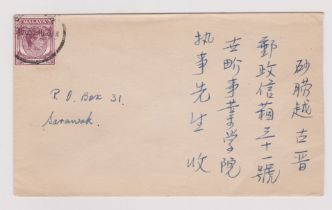 MALAYA
砂朥越 古晋
郵政信箱三十一號
世界事業学院
执事先生 收
P. O. Box 31.
Sarawak.